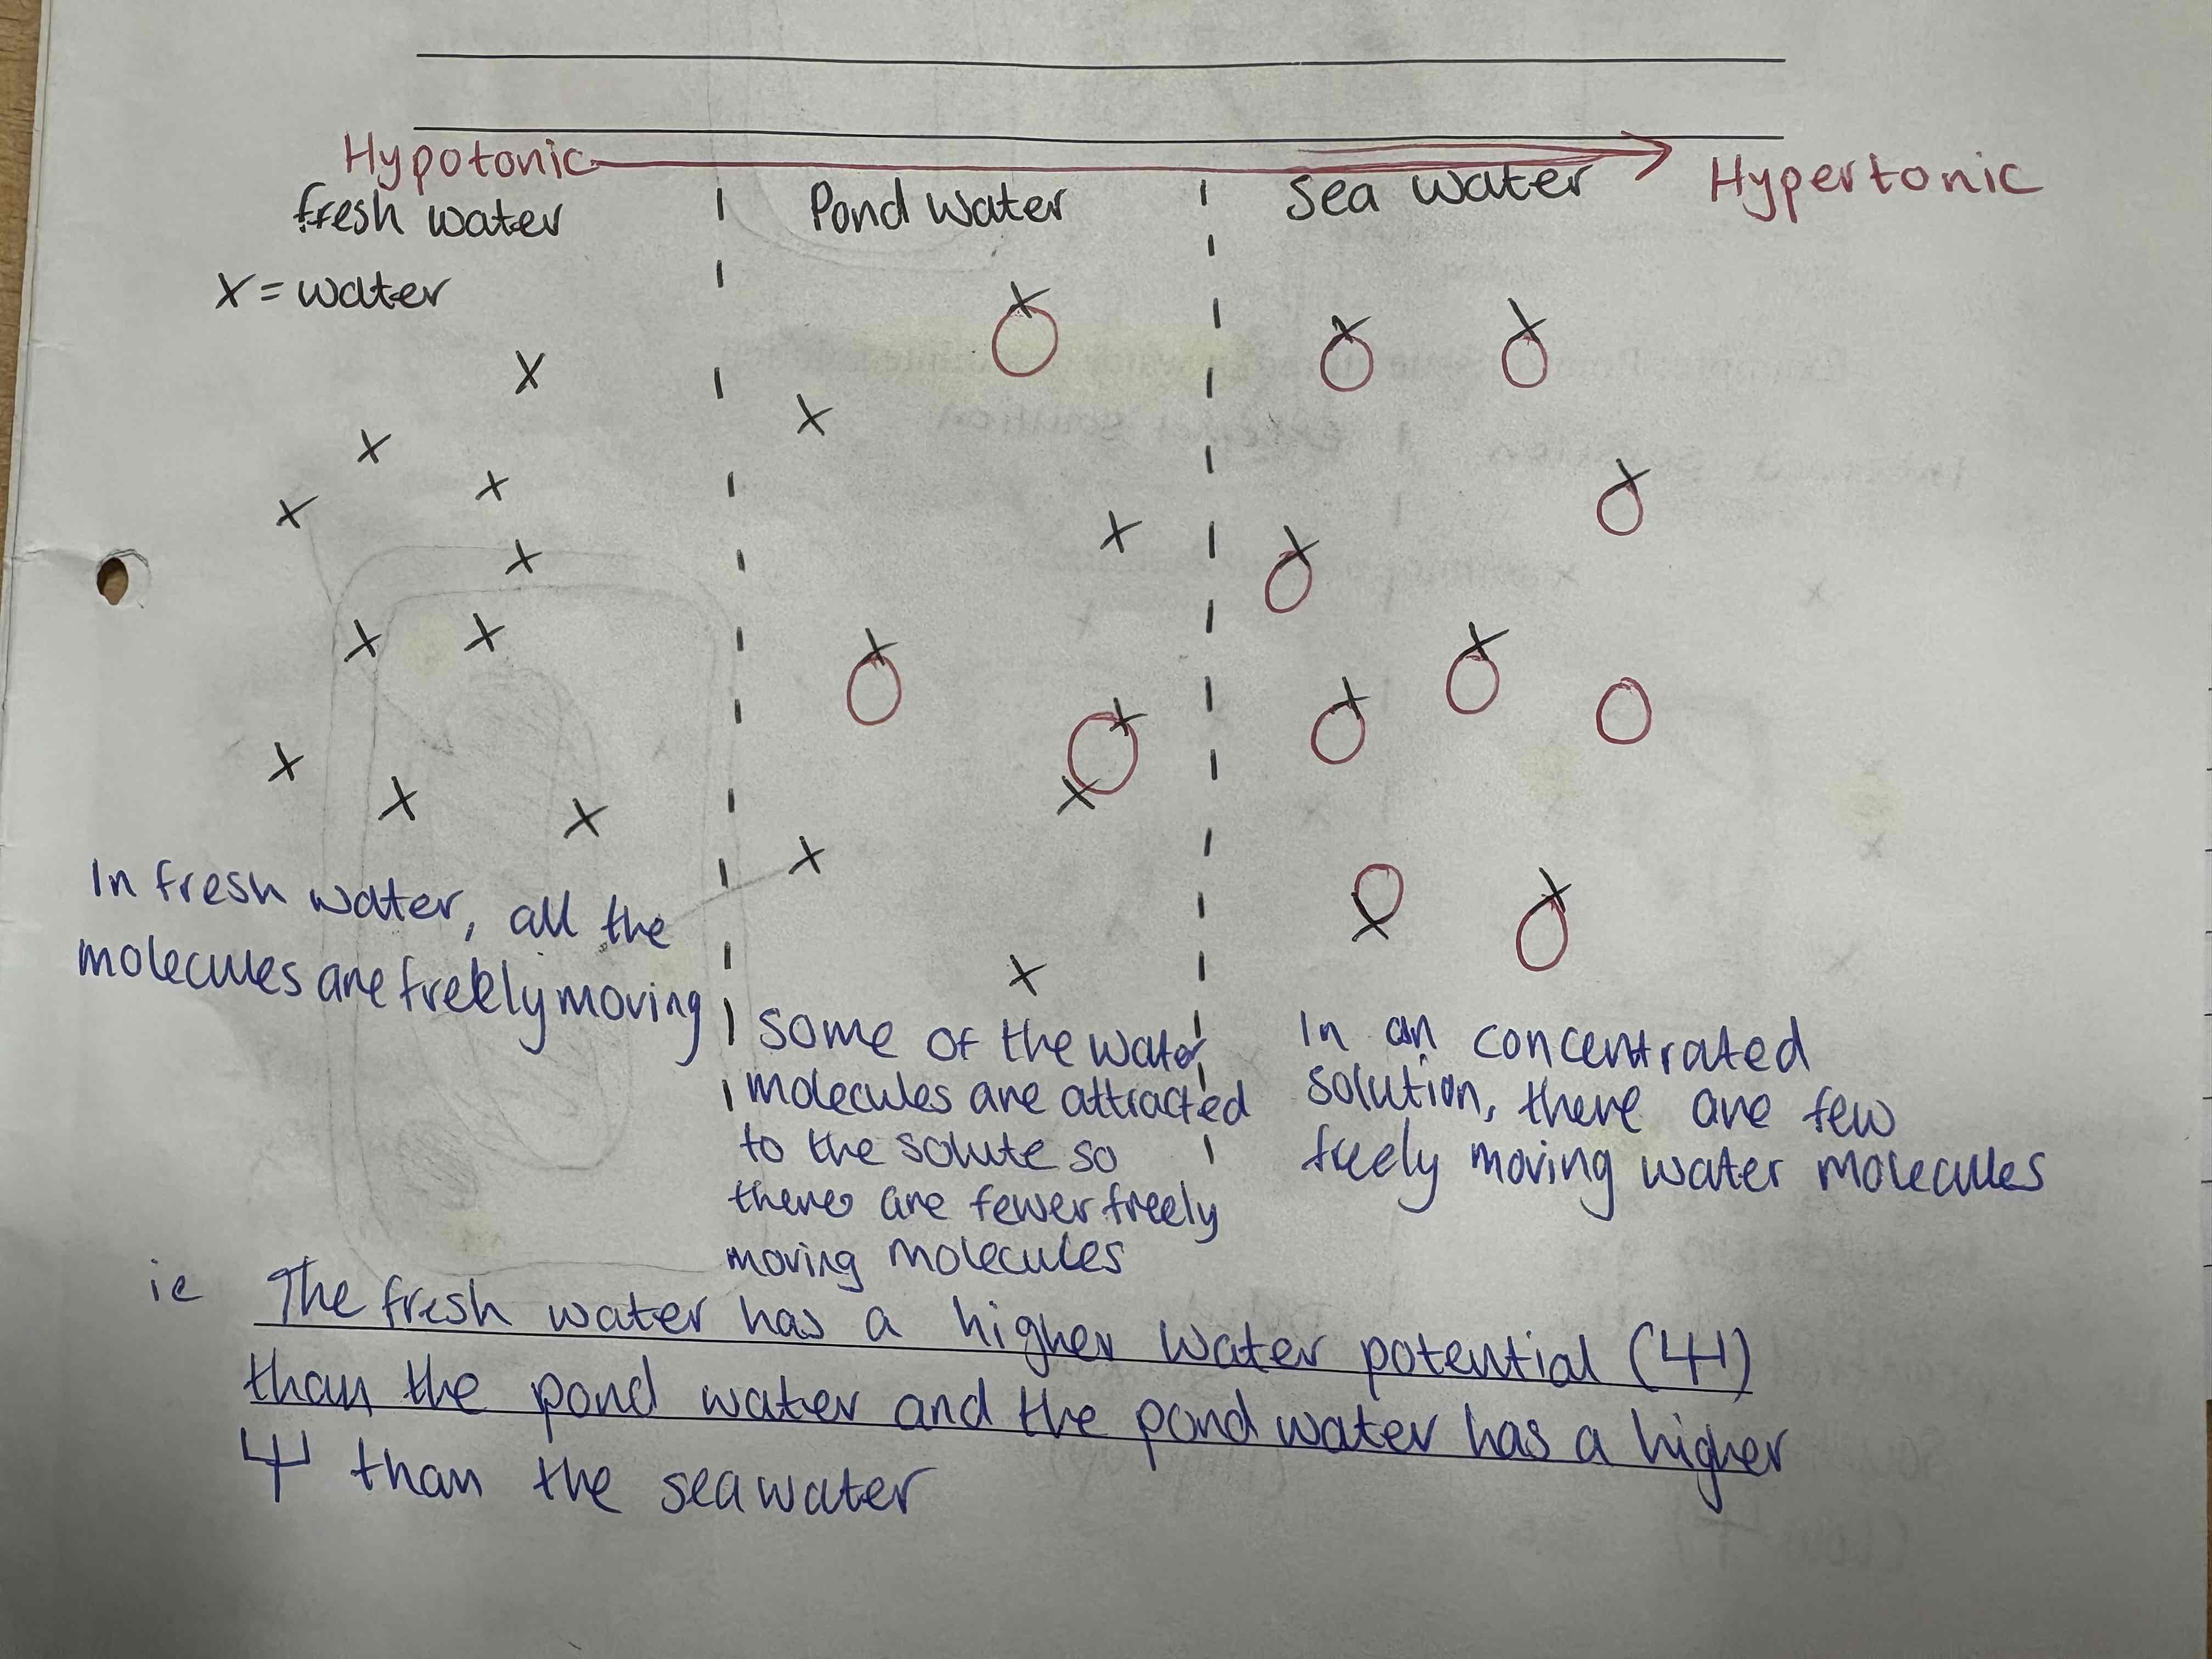 Hypotonic
Hypertonic
fresh water
Pond water
Sea water
X = water
In fresh water, all the
molecules are freely moving
Some of the water
molecules are attracted
to the solute so
there are fewer freely
moving molecules
In an concentrated
solution, there are few
freely moving water molecules
ie The fresh water has a higher water potential (Ψ)
than the pond water and the pond water has a higher
Ψ than the sea water